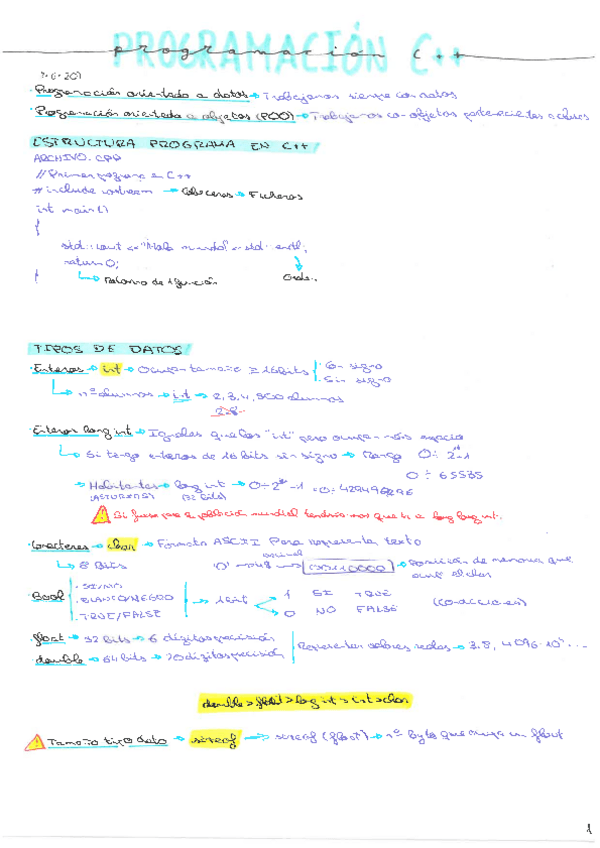 PROGRAMACIÓN C++
programación C++
·Programación orientada a datos → Trabajamos siempre con datos
·Programación orientada a objetos (POO) → Trabajamos con objetos pertenecientes a clases
ESTRUCTURA PROGRAMA EN C++
ARCHIVO.CPP
//Primer programa en C++
#include iostream → Cabeceras → Ficheros
int main()
{
std::cout << "Hola mundo" << std::endl;
return 0;
} → Retorno de función
TIPOS DE DATOS
·Enteros → int → Ocupan tamaño ≥ 16 bits Con signo
Sin signo
→ nº alumnos → int → 2,3,4,500 alumnos
·Enteros long int → Iguales que los "int" pero ocupan más espacio
→ Si tengo enteros de 16 bits sin signo → Rango 0 ÷ 2¹⁶-1
0 ÷ 65535
→ Habitantes → long int → 0 ÷ 2³²-1 = 0 ÷ 4294967296
(ASTURIAS) (32 bits)
Si fuese para la población mundial tendríamos que ir a long long int.
·Caracteres → char → Formato ASCII Para representar texto
→ 8 Bits '0' → 48 → 00110000 → Posición de memoria que
ocupa el char
·Bool SI/NO
·BLANCO/NEGRO → 1 bit 1 SI TRUE
·TRUE/FALSE 0 NO FALSE (Condiciones)
·float → 32 bits → 6 dígitos precisión
·double → 64 bits → 10 dígitos precisión Representar valores reales → 3.8, 4096·10⁵...
double > float > long int > int > char
Tamaño tipo dato → sizeof → sizeof(float) → nº byte que ocupa un float
1